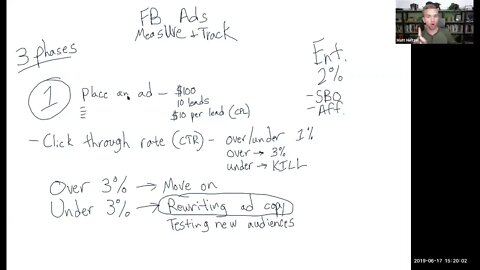 FB Ads
Measure + Track
3 phases
1
Place an ad - $100
10 leads
$10 per lead (CPL)
Ent.
2%
- SBO
- Aff.
- Click through rate (CTR) - over/under 1%
over → 3%
under → KILL
Over 3% → Move on
Under 3% → Rewriting ad copy
Testing new audiences
2019-06-17 15:20:02